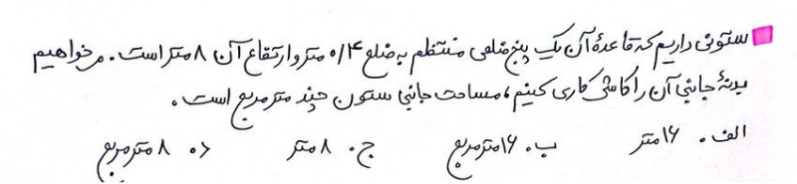 ستونی داریم که قاعدهٔ آن یک پنج ضلعی منتظم به ضلع ۰/۴ متر و ارتفاع آن ۸ متر است. می‌خواهیم
بدنهٔ جانبی آن را کاشی کاری کنیم، مساحت جانبی ستون چند متر مربع است.
الف. ۱۶ متر ب. ۱۶ متر مربع ج. ۸ متر د. ۸ متر مربع